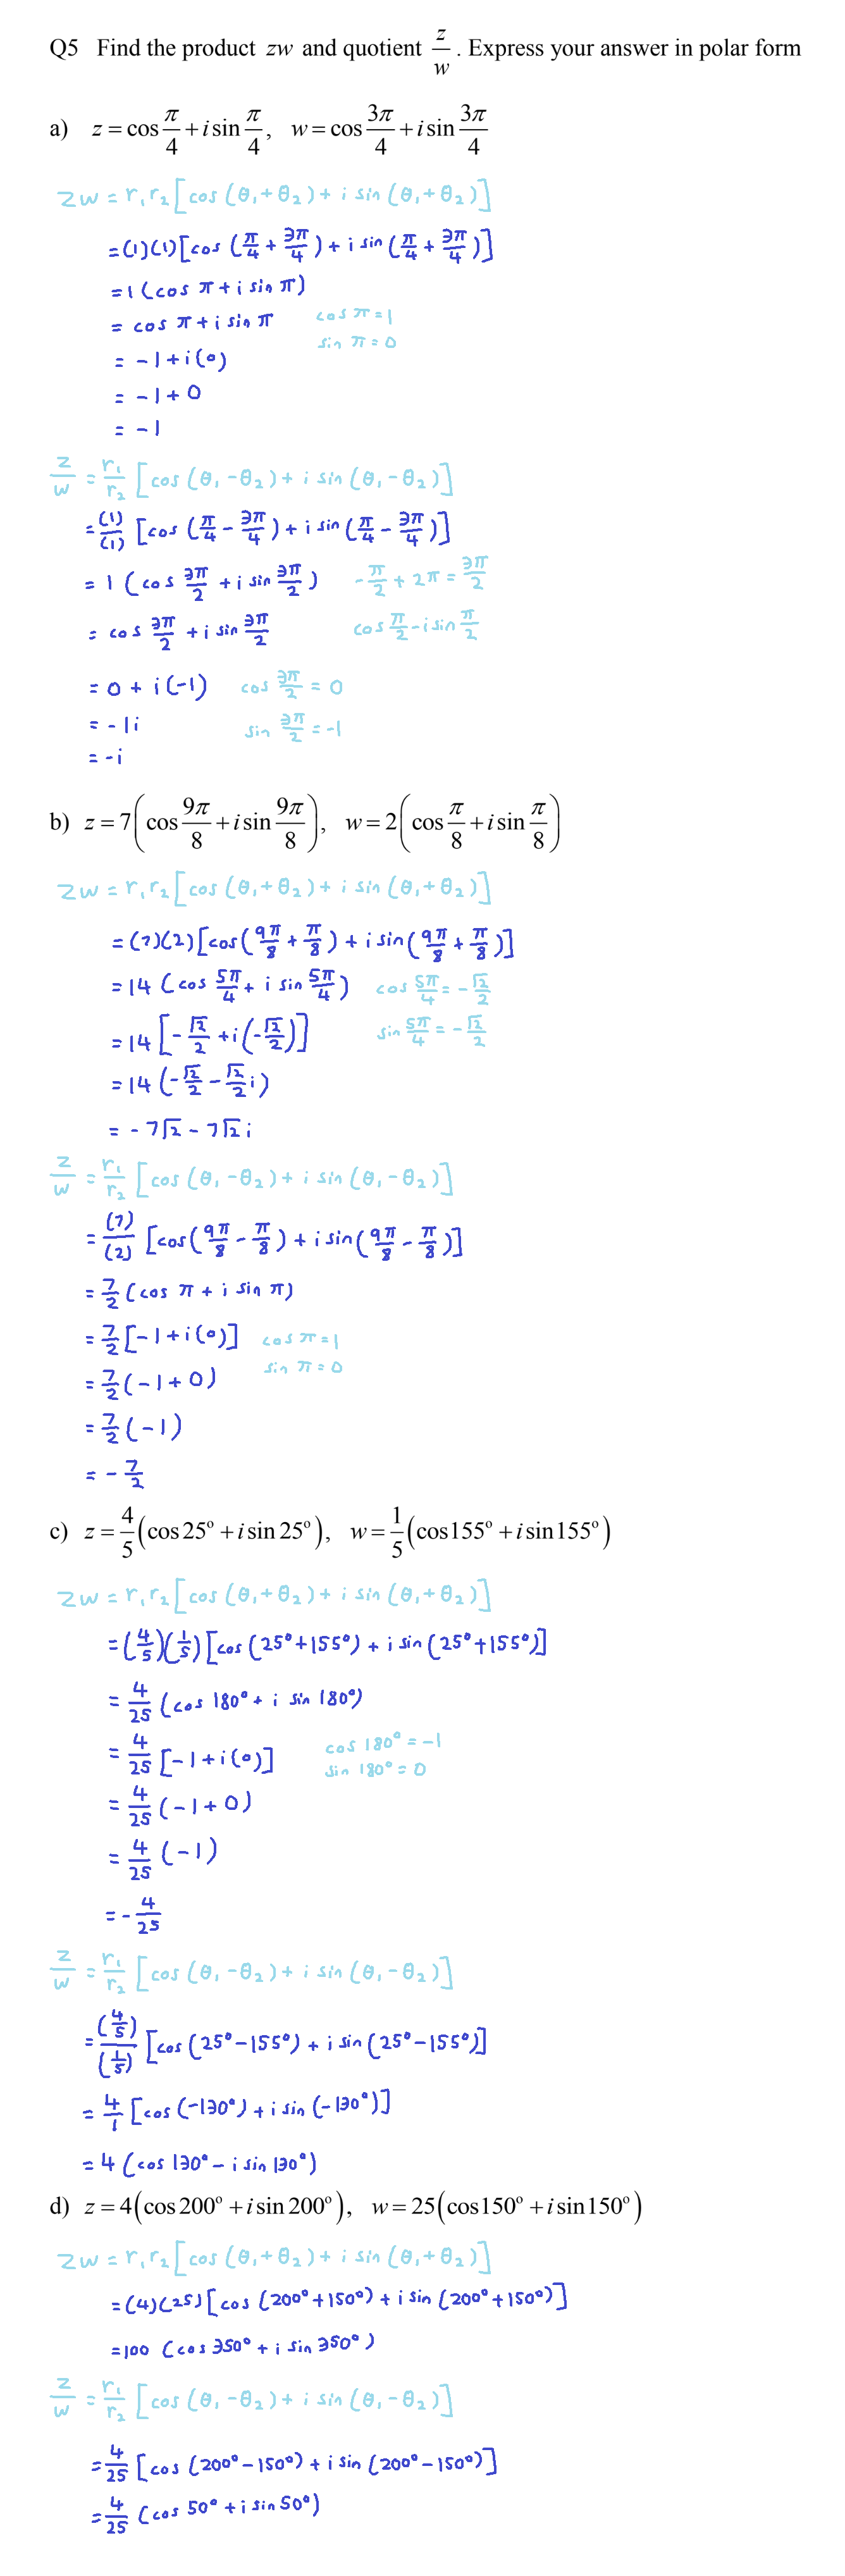 Q5 Find the product zw and quotient z/w. Express your answer in polar form
a) z = cos π/4 + i sin π/4, w = cos 3π/4 + i sin 3π/4
zw = r₁r₂[cos(θ₁+θ₂) + i sin(θ₁+θ₂)]
= (1)(1)[cos(π/4 + 3π/4) + i sin(π/4 + 3π/4)]
= 1(cos π + i sin π)
= cos π + i sin π cos π = 1
sin π = 0
= -1 + i(0)
= -1 + 0
= -1
z/w = r₁/r₂ [cos(θ₁-θ₂) + i sin(θ₁-θ₂)]
= (1)/(1) [cos(π/4 - 3π/4) + i sin(π/4 - 3π/4)]
= 1(cos 3π/2 + i sin 3π/2) -π/2 + 2π = 3π/2
= cos 3π/2 + i sin 3π/2 cos π/2 - i sin π/2
= 0 + i(-1) cos 3π/2 = 0
= -1i sin 3π/2 = -1
= -i
b) z = 7(cos 9π/8 + i sin 9π/8), w = 2(cos π/8 + i sin π/8)
zw = r₁r₂[cos(θ₁+θ₂) + i sin(θ₁+θ₂)]
= (7)(2)[cos(9π/8 + π/8) + i sin(9π/8 + π/8)]
= 14(cos 5π/4 + i sin 5π/4) cos 5π/4 = -√2/2
= 14[-√2/2 + i(-√2/2)] sin 5π/4 = -√2/2
= 14(-√2/2 - √2/2 i)
= -7√2 - 7√2 i
z/w = r₁/r₂ [cos(θ₁-θ₂) + i sin(θ₁-θ₂)]
= (7)/(2) [cos(9π/8 - π/8) + i sin(9π/8 - π/8)]
= 7/2 (cos π + i sin π)
= 7/2 [-1 + i(0)] cos π = 1
sin π = 0
= 7/2 (-1 + 0)
= 7/2 (-1)
= -7/2
c) z = 4/5 (cos 25° + i sin 25°), w = 1/5 (cos 155° + i sin 155°)
zw = r₁r₂[cos(θ₁+θ₂) + i sin(θ₁+θ₂)]
= (4/5)(1/5)[cos(25°+155°) + i sin(25°+155°)]
= 4/25 (cos 180° + i sin 180°)
= 4/25 [-1 + i(0)] cos 180° = -1
sin 180° = 0
= 4/25 (-1 + 0)
= 4/25 (-1)
= -4/25
z/w = r₁/r₂ [cos(θ₁-θ₂) + i sin(θ₁-θ₂)]
= (4/5)/(1/5) [cos(25°-155°) + i sin(25°-155°)]
= 4/1 [cos(-130°) + i sin(-130°)]
= 4(cos 130° - i sin 130°)
d) z = 4(cos 200° + i sin 200°), w = 25(cos 150° + i sin 150°)
zw = r₁r₂[cos(θ₁+θ₂) + i sin(θ₁+θ₂)]
= (4)(25)[cos(200°+150°) + i sin(200°+150°)]
= 100 (cos 350° + i sin 350°)
z/w = r₁/r₂ [cos(θ₁-θ₂) + i sin(θ₁-θ₂)]
= 4/25 [cos(200°-150°) + i sin(200°-150°)]
= 4/25 (cos 50° + i sin 50°)